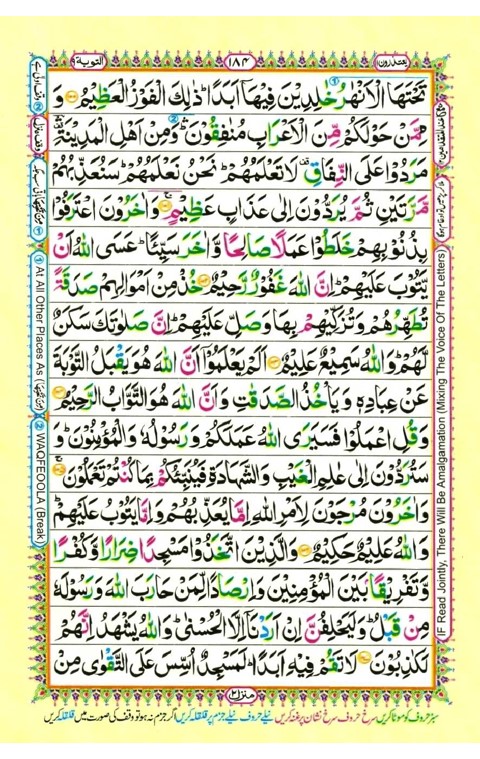 يعتذرون ١١
١٨٤
التوبة ٩
تَحْتَهَا الْاَنْهٰرُ خٰلِدِيْنَ فِيْهَاۤ اَبَدًا ؕ ذٰلِكَ الْفَوْزُ الْعَظِيْمُ ۝ وَ
مِمَّنْ حَوْلَكُمْ مِّنَ الْاَعْرَابِ مُنٰفِقُوْنَ ۛؕ وَمِنْ اَهْلِ الْمَدِيْنَةِ ۛؔ
مَرَدُوْا عَلَى النِّفَاقِ ۫ لَا تَعْلَمُهُمْ ؕ نَحْنُ نَعْلَمُهُمْ ؕ سَنُعَذِّبُهُمْ
مَّرَّتَيْنِ ثُمَّ يُرَدُّوْنَ اِلٰى عَذَابٍ عَظِيْمٍ ۝ وَاٰخَرُوْنَ اعْتَرَفُوْا
بِذُنُوْبِهِمْ خَلَطُوْا عَمَلًا صَالِحًا وَّاٰخَرَ سَيِّئًا ؕ عَسَى اللّٰهُ اَنْ
يَّتُوْبَ عَلَيْهِمْ ؕ اِنَّ اللّٰهَ غَفُوْرٌ رَّحِيْمٌ ۝ خُذْ مِنْ اَمْوَالِهِمْ صَدَقَةً
تُطَهِّرُهُمْ وَتُزَكِّيْهِمْ بِهَا وَصَلِّ عَلَيْهِمْ ؕ اِنَّ صَلٰوتَكَ سَكَنٌ
لَّهُمْ ؕ وَاللّٰهُ سَمِيْعٌ عَلِيْمٌ ۝ اَلَمْ يَعْلَمُوْۤا اَنَّ اللّٰهَ هُوَ يَقْبَلُ التَّوْبَةَ
عَنْ عِبَادِهٖ وَيَاْخُذُ الصَّدَقٰتِ وَاَنَّ اللّٰهَ هُوَ التَّوَّابُ الرَّحِيْمُ ۝
وَقُلِ اعْمَلُوْا فَسَيَرَى اللّٰهُ عَمَلَكُمْ وَرَسُوْلُهٗ وَالْمُؤْمِنُوْنَ ؕ وَ
سَتُرَدُّوْنَ اِلٰى عٰلِمِ الْغَيْبِ وَالشَّهَادَةِ فَيُنَبِّئُكُمْ بِمَا كُنْتُمْ تَعْمَلُوْنَ ۝
وَاٰخَرُوْنَ مُرْجَوْنَ لِاَمْرِ اللّٰهِ اِمَّا يُعَذِّبُهُمْ وَاِمَّا يَتُوْبُ عَلَيْهِمْ ؕ
وَاللّٰهُ عَلِيْمٌ حَكِيْمٌ ۝ وَالَّذِيْنَ اتَّخَذُوْا مَسْجِدًا ضِرَارًا وَّكُفْرًا
وَّتَفْرِيْقًاۢ بَيْنَ الْمُؤْمِنِيْنَ وَاِرْصَادًا لِّمَنْ حَارَبَ اللّٰهَ وَرَسُوْلَهٗ
مِنْ قَبْلُ ؕ وَلَيَحْلِفُنَّ اِنْ اَرَدْنَاۤ اِلَّا الْحُسْنٰى ؕ وَاللّٰهُ يَشْهَدُ اِنَّهُمْ
لَكٰذِبُوْنَ ۝ لَا تَقُمْ فِيْهِ اَبَدًا ؕ لَمَسْجِدٌ اُسِّسَ عَلَى التَّقْوٰى مِنْ
منزل ٢
سبز حروف کو موٹا کریں سرخ حروف سرخ نشان پر غنہ کریں نیلے حروف نیلے جزم پر قلقلہ کریں اگر جزم نہ ہو تو وقف کی صورت میں قلقلہ کریں
① At All Other Places As
② WAQFEOOLA (Break)
IF Read Jointly, There Will Be Amalgamation (Mixing The Voice Of The Letters)